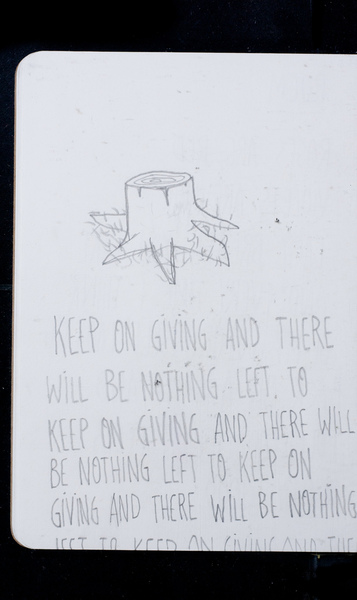 KEEP ON GIVING AND THERE
WILL BE NOTHING LEFT. TO
KEEP ON GIVING AND THERE WILL
BE NOTHING LEFT TO KEEP ON
GIVING AND THERE WILL BE NOTHING
LEFT TO KEEP ON GIVING AND THE